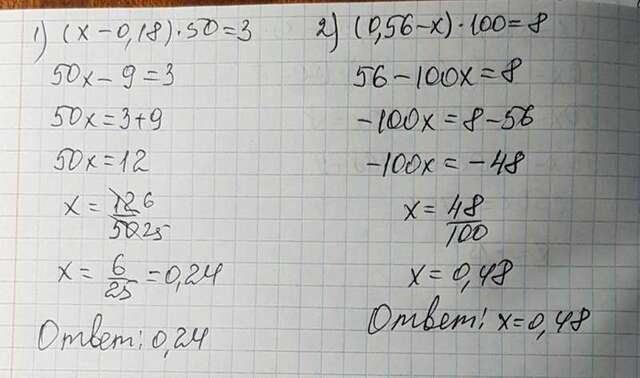 1) (x − 0,18) · 50 = 3
50x − 9 = 3
50x = 3+9
50x = 12
x = 12 6 / 50 25
x = 6/25 = 0,24
Ответ: 0,24
2) (0,56 − x) · 100 = 8
56 − 100x = 8
−100x = 8 − 56
−100x = −48
x = 48/100
x = 0,48
Ответ: x = 0,48